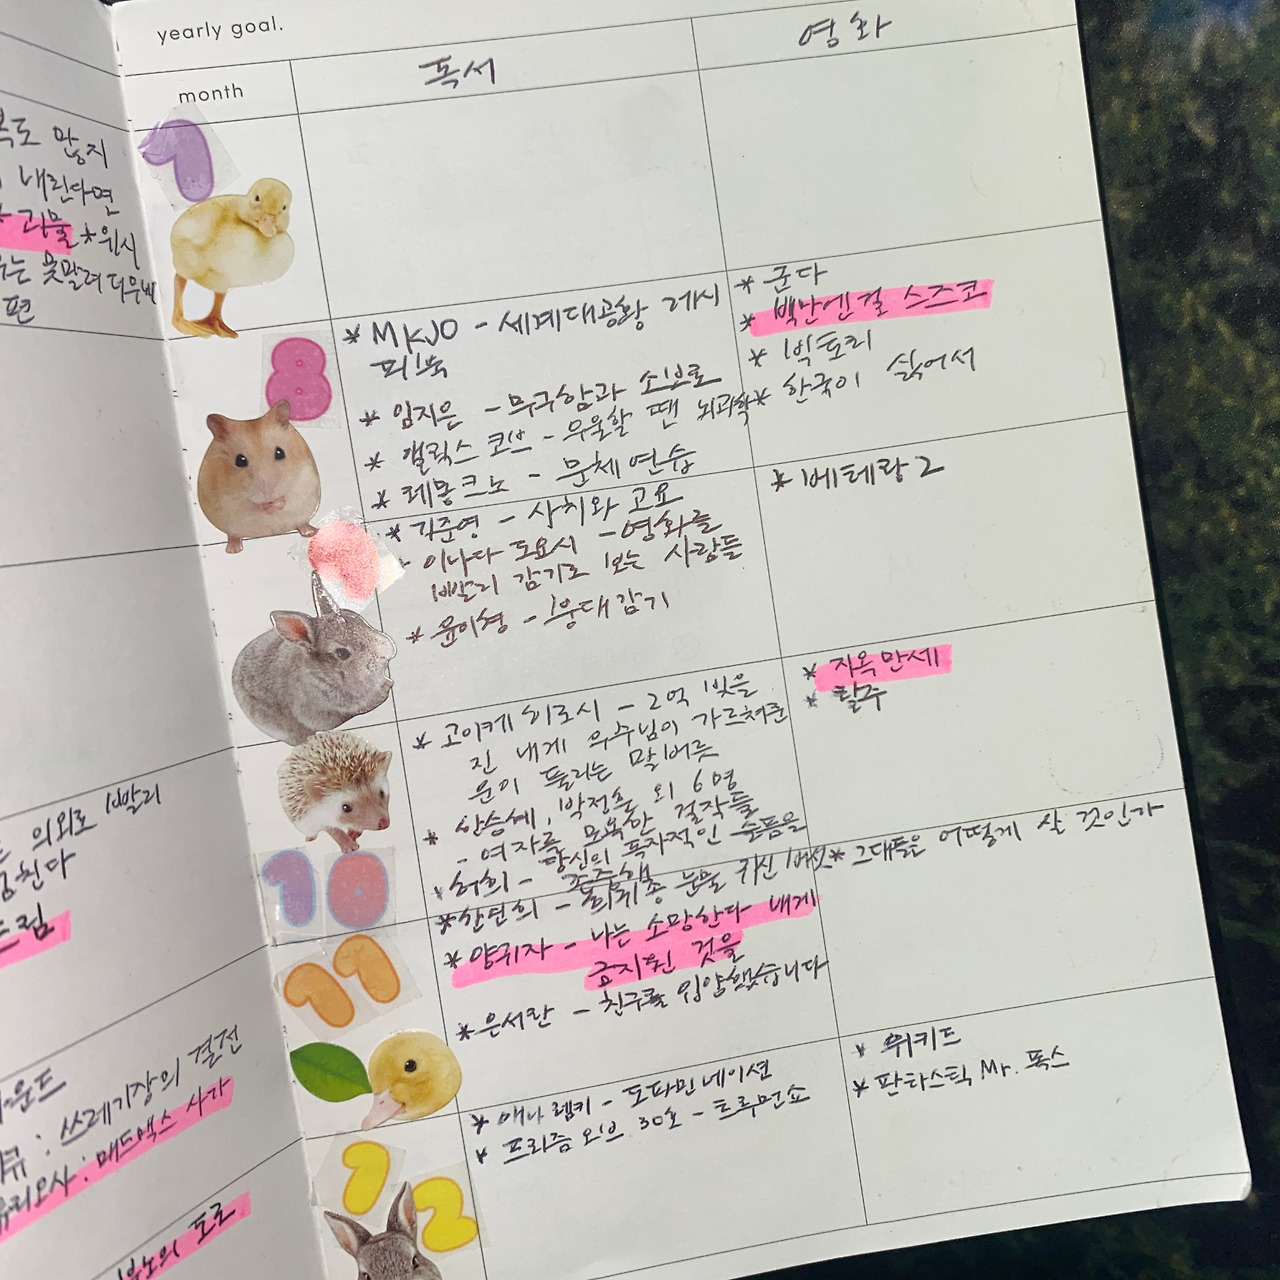 복도 많지
내린다면
괴물 *위시
는 못말려 더무비
편
의외로 빨리
친다
드림
라운드
큐 : 쓰레기장의 결전
퓨리오사 : 매드맥스 사가
분노의 도로
yearly goal.
month
독서
영화
7
8
* MKJO - 세계대공황 레시
피북
* 임지은 - 무구함과 소보로
* 앨릭스 코브 - 우울할 땐 뇌과학
* 레몽크노 - 문체 연습
* 군다
* 백만엔걸 스즈코
* 빅토리
* 한국이 싫어서
* 김준영 - 사치와 고요
이나다 도요시 - 영화를
빨리 감기로 보는 사람들
* 윤이형 - 붕대감기
* 베테랑 2
10
* 고이케 히로시 - 2억 빚을
진 내게 우주님이 가르쳐준
운이 풀리는 말버릇
* 한승혜, 박정훈 외 6명
- 여자를 모욕한 걸작들
* 허희 - 당신의 독자적인 슬픔을
존중해
* 지옥만세
* 탈주
11
* 찬연희 - 희귀종 눈물 귀신 버섯
* 양귀자 - 나는 소망한다 내게
금지된 것을
* 은서란 - 친구를 입양했습니다
* 그대들은 어떻게 살 것인가
12
* 애나 렘키 - 도파민네이션
* 프리즘오브 30호 - 트루먼쇼
* 위키드
* 판타스틱 Mr. 폭스